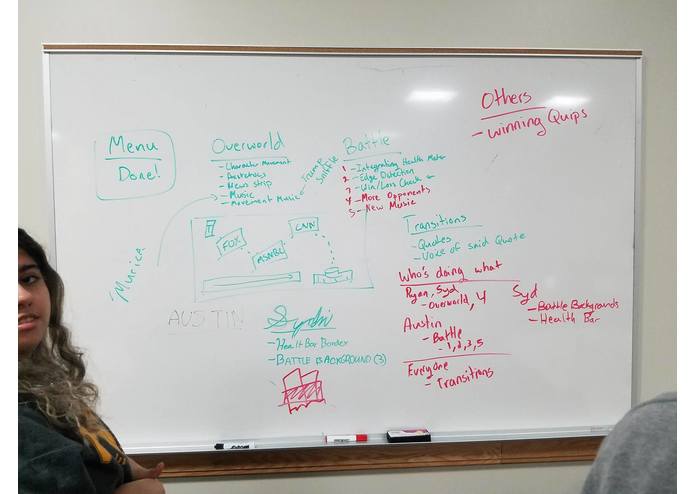 Others
- Winning Quips
Menu
Done!
Overworld
- Character Movement
- Aesthetics
- News strip
- Music
- Movement Music
Trump
Shuffle
Battle
1 - Integrating Health Meter
2 - Edge Detection
3 - Win/Loss Check
4 - More Opponents
5 - New Music
FOX
MSNBC
CNN
'Murica
AUSTIN!
Transitions
- Quotes
- Voice of said Quote
Who's doing what
Ryan, Syd
- Overworld, 4
Austin
- Battle
- 1, 2, 3, 5
Everyone
- Transitions
Syd
- Battle Backgrounds
- Health Bar
- Healt Bar Border
- BATTLE BACKGROUND (3)